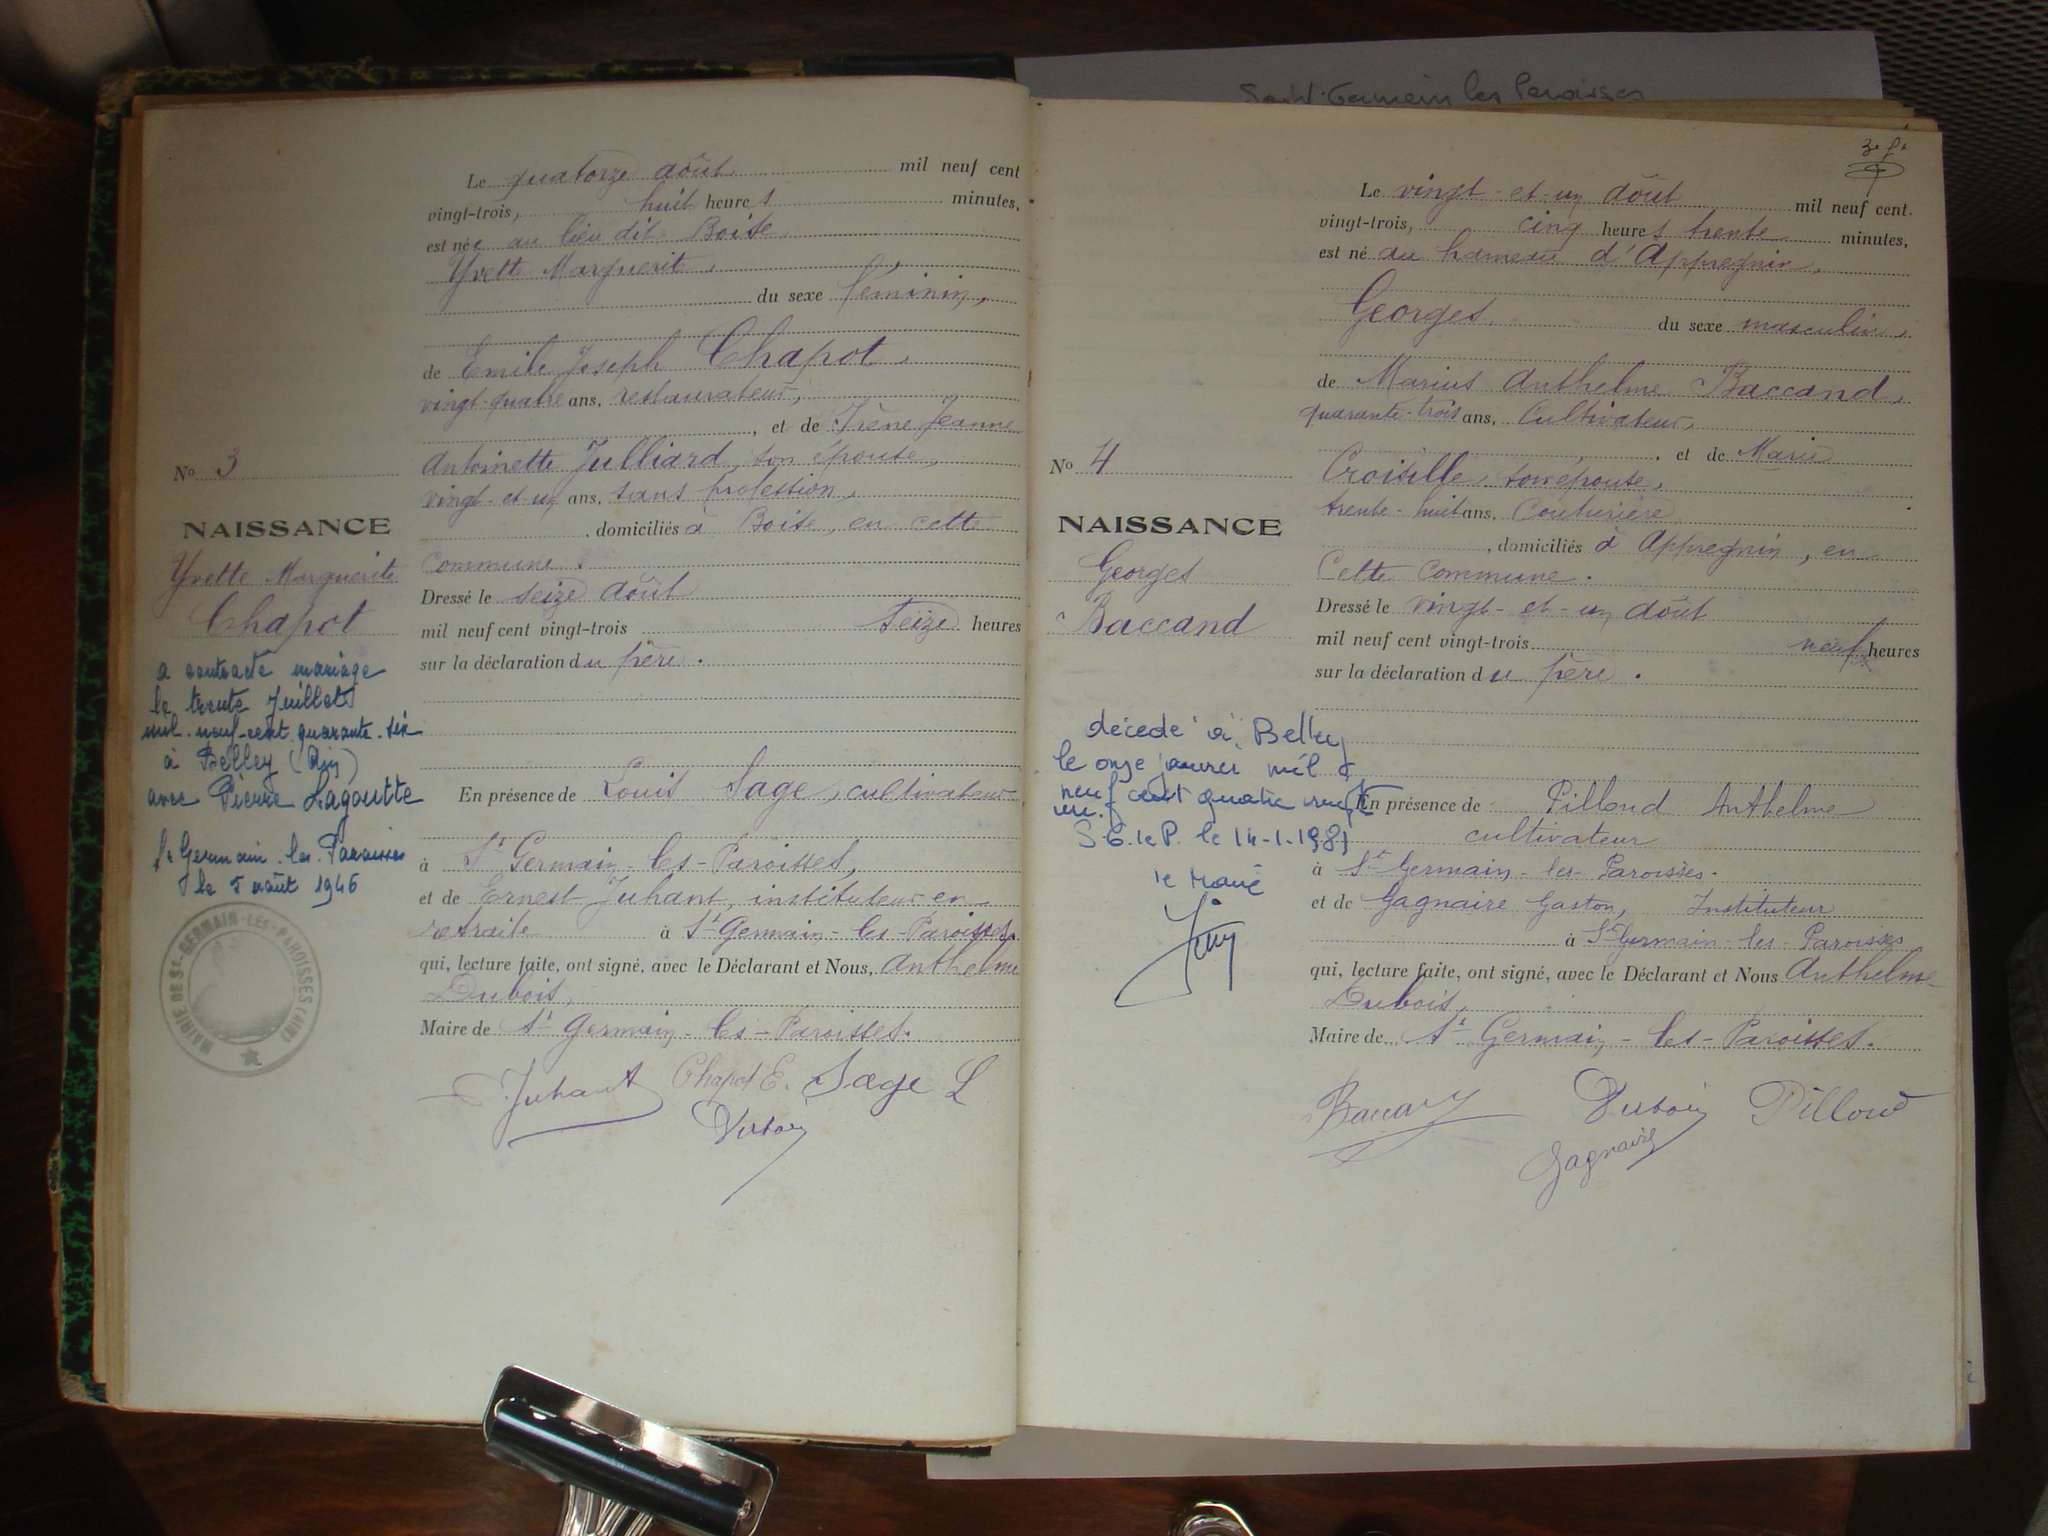 Saint-Germain les Paroisses
Le quatorze août mil neuf cent
vingt-trois, huit heures minutes,
est née au lieu dit Boise
Yvette Marguerite,
du sexe féminin,
de Emile Joseph Chapot,
vingt-quatre ans, restaurateur,
, et de Irène Jeanne
Antoinette Julliard, son épouse,
vingt-et-un ans, sans profession,
, domiciliés à Boise, en cette
commune.
Dressé le seize août
mil neuf cent vingt-trois seize heures
sur la déclaration du père.
En présence de Louis Sage, cultivateur
à St Germain-les-Paroisses,
et de Ernest Juhant, instituteur en
retraite à St Germain-les-Paroisses,
qui, lecture faite, ont signé, avec le Déclarant et Nous, Anthelme
Dubois,
Maire de St Germain-les-Paroisses.
Juhant Chapot E. Sage L
Dubois
No 3
NAISSANCE
Yvette Marguerite
Chapot
a contracté mariage
le trente Juillet
mil-neuf-cent quarante-six
à Belley (Ain)
avec Pierre Lagoutte
St Germain-les-Paroisses
le 5 août 1946
MAIRIE DE ST-GERMAIN-LES-PAROISSES (AIN)
Le vingt-et-un août mil neuf cent
vingt-trois, cinq heures trente minutes,
est né au hameau d'Appregnin,
Georges du sexe masculin,
de Marius Anthelme Baccand,
quarante-trois ans, Cultivateur,
, et de Marie
Croisille, son épouse,
trente-huit ans, Couturière
, domiciliés à Appregnin, en
Cette commune.
Dressé le vingt-et-un août
mil neuf cent vingt-trois neuf heures
sur la déclaration du père.
En présence de Pilloud Anthelme
cultivateur
à St Germain-les-Paroisses.
et de Gagnaire Gaston, Instituteur
à St Germain-les-Paroisses
qui, lecture faite, ont signé, avec le Déclarant et Nous Anthelme
Dubois,
Maire de St Germain-les-Paroisses.
Baccand Dubois Pilloud
Gagnaire
No 4
NAISSANCE
Georges
Baccand
décédé à Belley
le onze janvier mil
neuf cent quatre vingt
S.G.le P. le 14-1-1981
le Maire